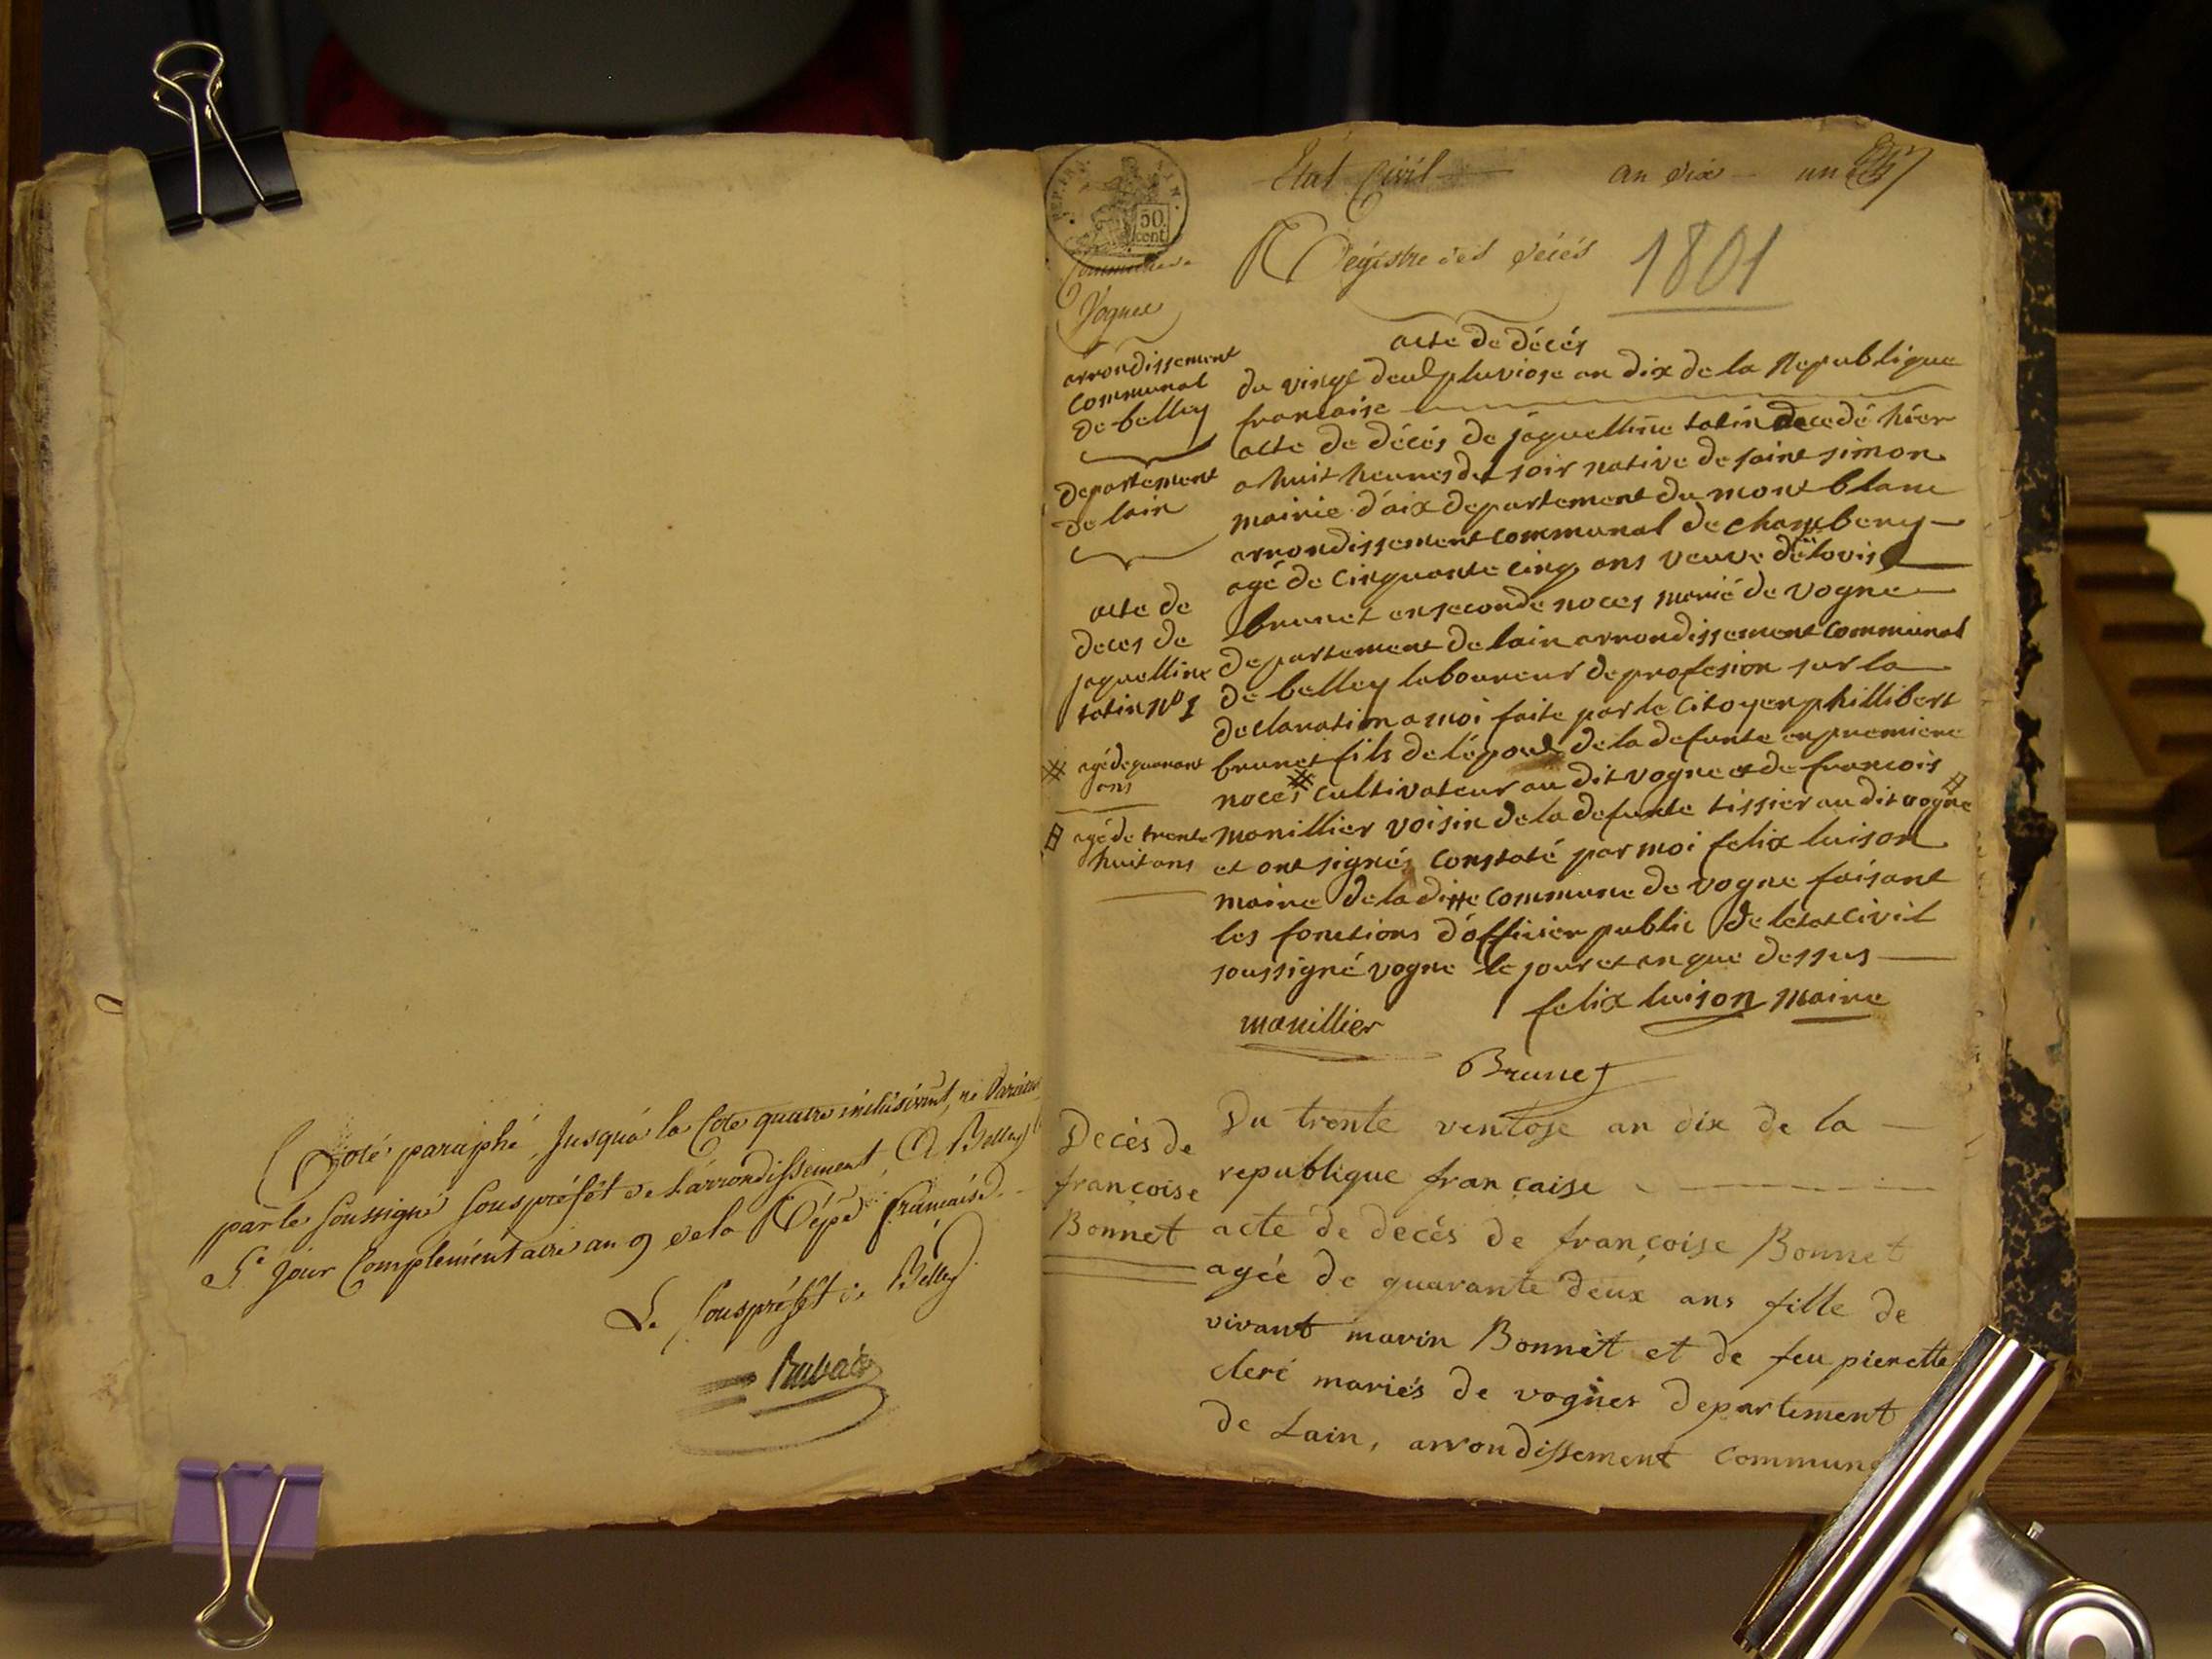 Coté paraphé, Jusqu'a la Cote quatre inclusivmt, ne
par le soussigné souspréfet de l'arrondissement, A Belley
5e jour Complémentaire an 9 de la Répe française.
Le souspréfet de Belley
REP. FRA.
50
cent
État Civil an dix un
Régistre des décés 1801
Commune de
Vognes
arrondissement
communal
de belley
departement
de lain
acte de décés
du vingt deux pluviose an dix de la Republique
francaise
acte de décés de jaquelline tatin decedé hier
a huit heures du soir native de saint simon
mairie d'aix departement du mont blanc
arrondissement communal de chambery
agé de cinquante cinq ans veuve de louis
brunet en seconde noces marié de vogne
departement de lain arrondissement communal
de belley laboureur de profesion sur la
declaration a moi faite par le citoyen phillibert
brunet fils de lépoux de la defunte en premiere
noces # cultivateur au dit vogne et de francois
manillier voisin de la defunte tissier au dit vogne
et ont signés constaté par moi felix luison
maire de la ditte commune de vogne faisant
les fonctions d'officier public de letat civil
soussigné vogne le jour et an que dessus
manillier felix luison maire
Brunet
acte de
deces de
jaquelline
tatin no 1
# agé de quarant
ans
agé de trente
huit ans
Decès de
françoise
Bonnet
Du trente ventose an dix de la
republique française
acte de decés de françoise Bonnet
agée de quarante deux ans fille de
vivant marin Bonnet et de feu pierette
cleré mariés de vognes departement
de Lain, arrondissement commun